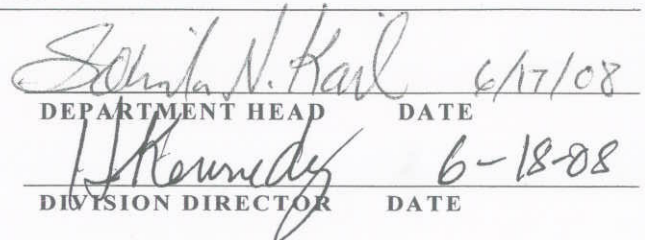 N. Kail 6/17/08
DEPARTMENT HEAD DATE
Kennedy 6-18-08
DIVISION DIRECTOR DATE